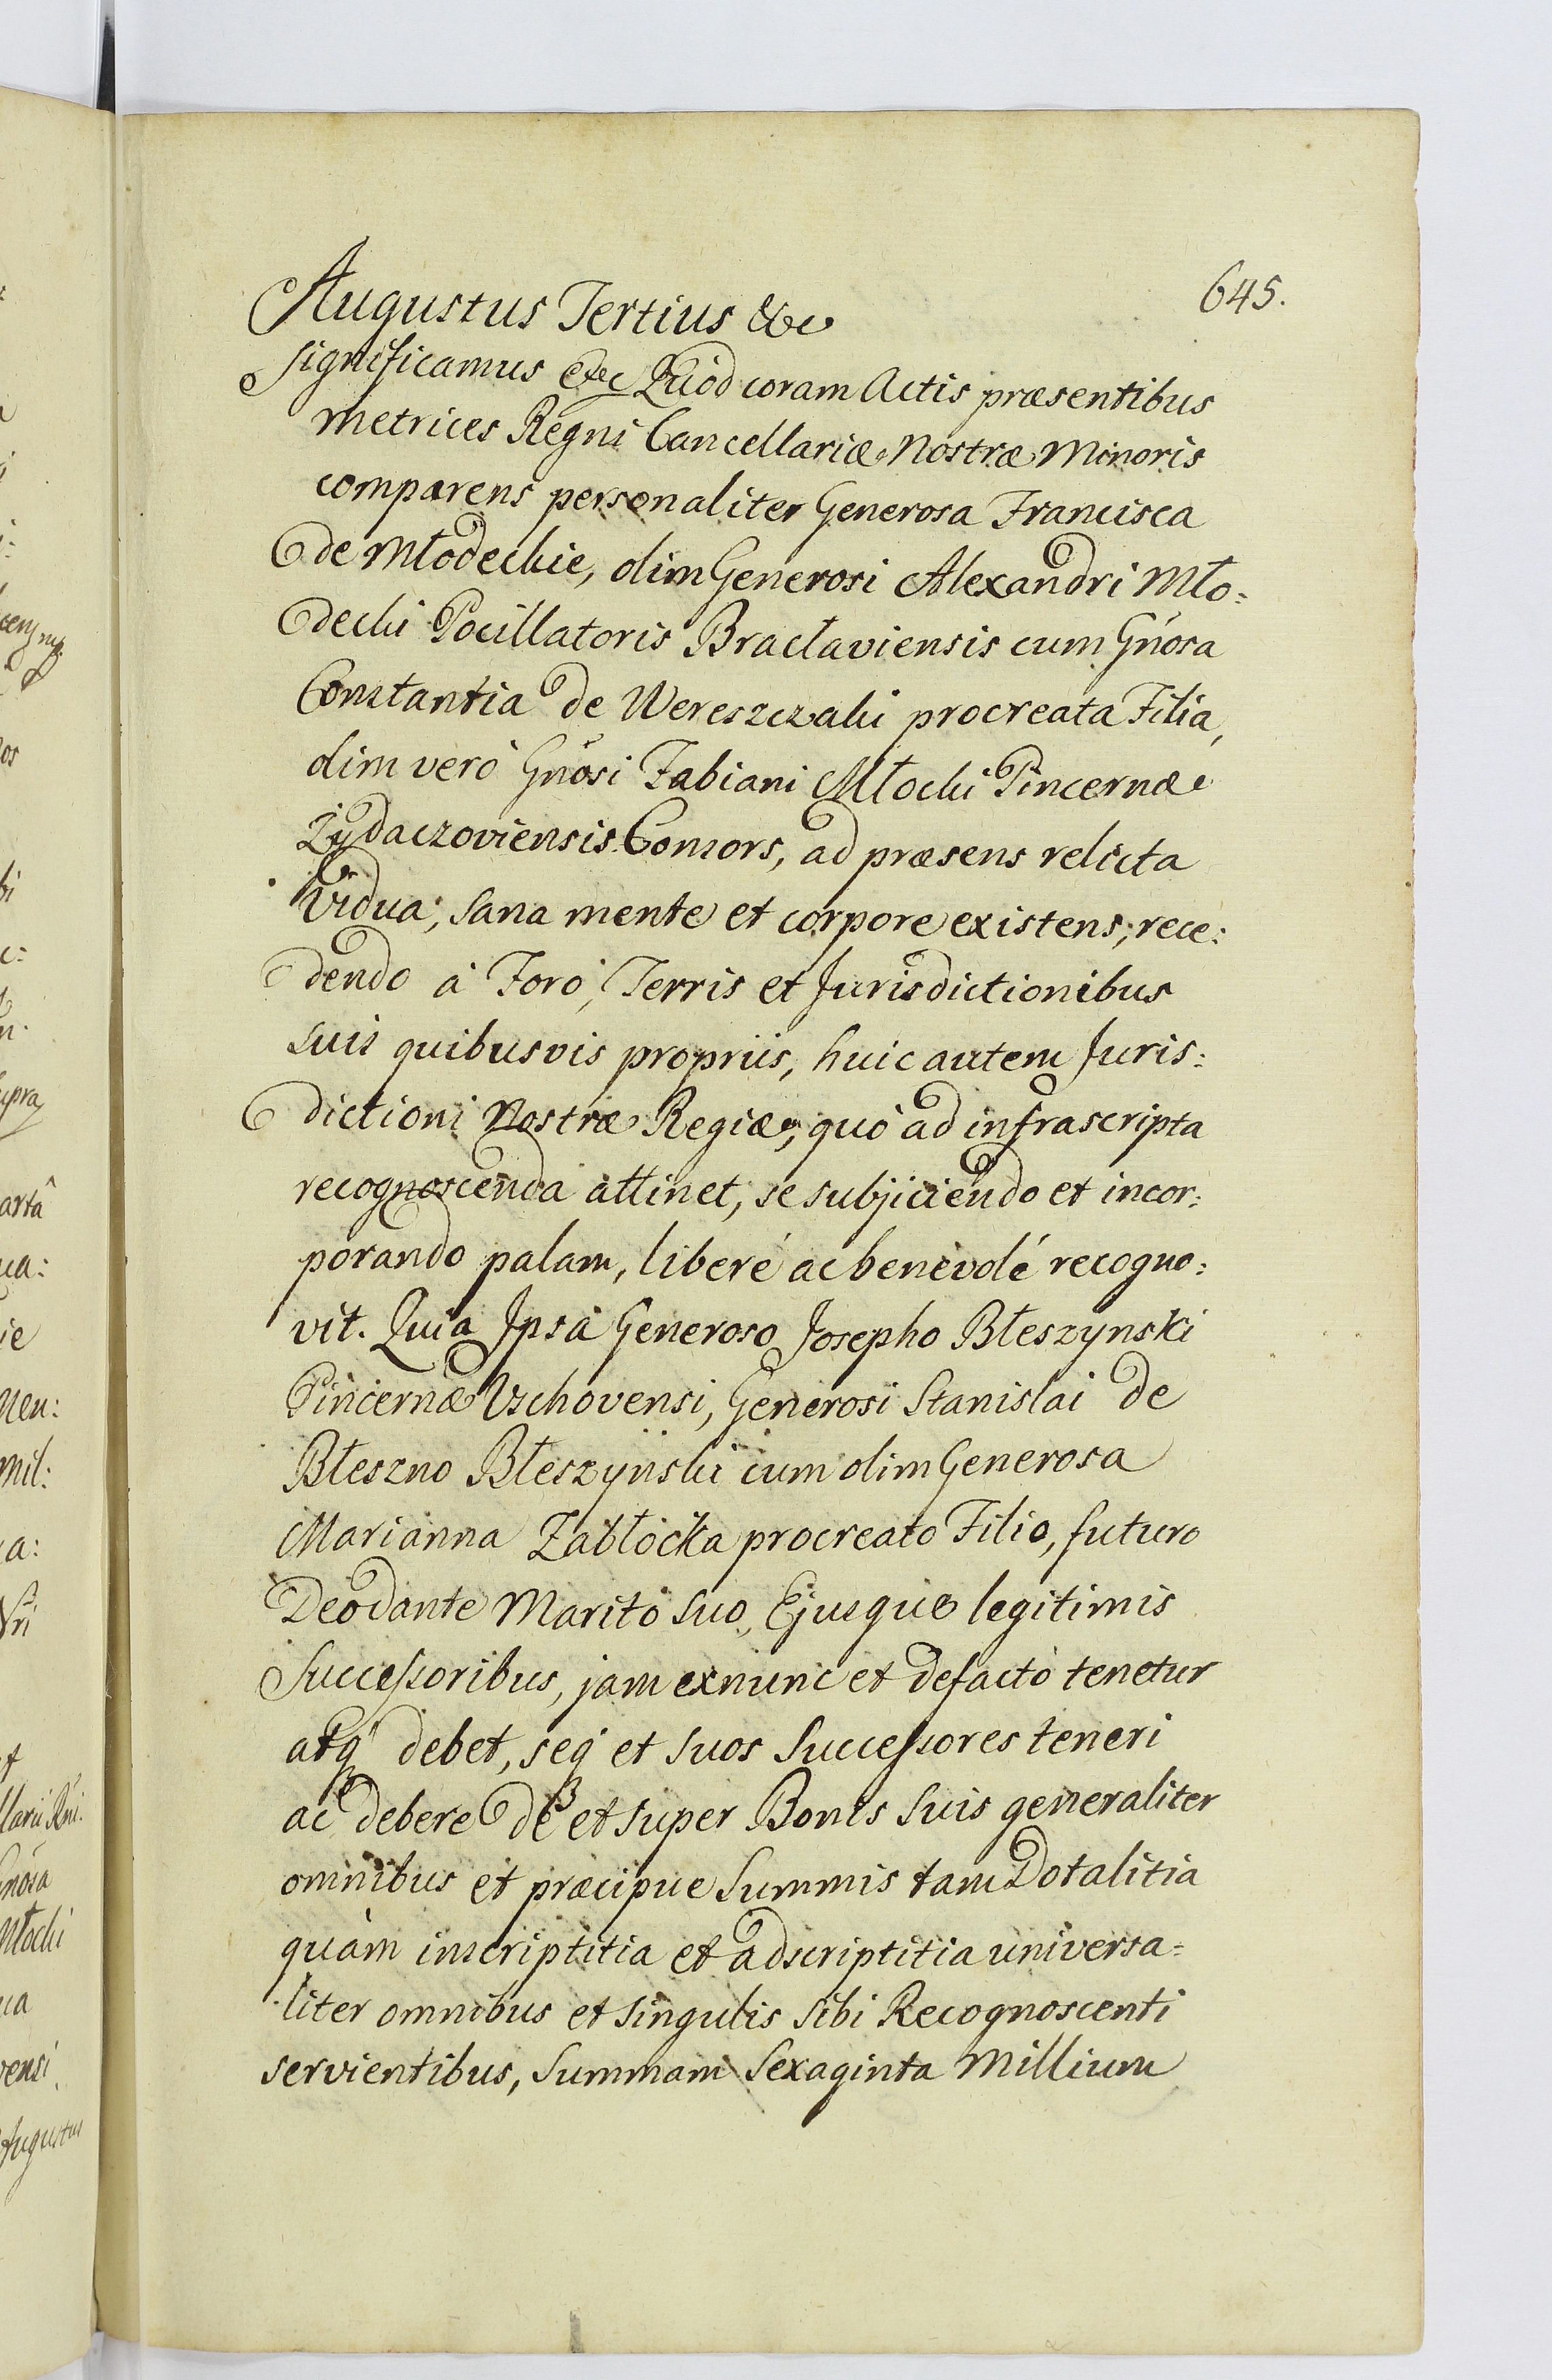 645.
Augustus Tertius &c
Significamus &c Quod coram Actis præsentibus
Metrices Regni Cancellariæ Nostræ Minoris
comparens personaliter Generosa Francisca
de Młodeckie, olim Generosi Alexandri Mło=
decki Pocillatoris Bracłaviensis cum Gnosa
Constantia de Wereszczaki procreata Filia,
olim verò Gnosi Fabiani Młocki Pincernæ
Zydaczoviensis Consors, ad præsens relicta
Vidua; sana mente et corpore existens; rece=
dendo à Foro, Terris et Jurisdictionibus
suis quibusvis propriis, huic autem Juris=
dictioni Nostræ Regiæ, quò ad infrascripta
recognoscenda attinet, se subjiciendo et incor=
porando palam, liberé ac benevolé recogno=
vit. Quia Ipsa Generoso Josepho Błeszynski
Pincernæ Vschovensi, Generosi Stanislai de
Błeszno Błeszynski cum olim Generosa
Marianna Zabłocka procreato Filio, futuro
Deo dante Marito suo, Ejusque legitimis
Successoribus, jam exnunc et defacto tenetur
atq debet, seq et suos Successores teneri
ac debere de et super Bonis suis generaliter
omnibus et præcipue Summis tam Dotalitia
quàm inscriptitia et adscriptitia universa=
liter omnibus et singulis sibi Recognoscenti
servientibus, Summam Sexaginta Millium